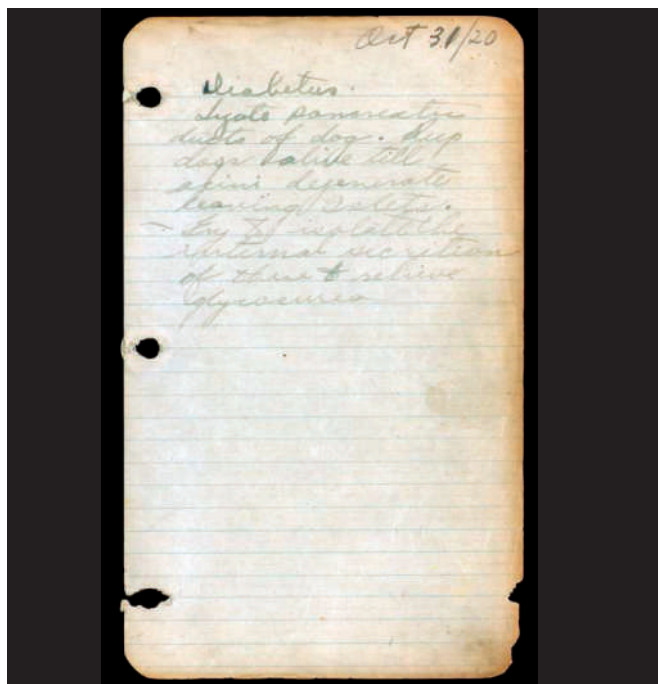 Oct 31/20
Diabetus.
Ligate pancreatic
ducts of dog. Keep
dogs alive till
acini degenerate
leaving Islets.
Try to isolate the
internal secretion
of these + relieve
glycosurea